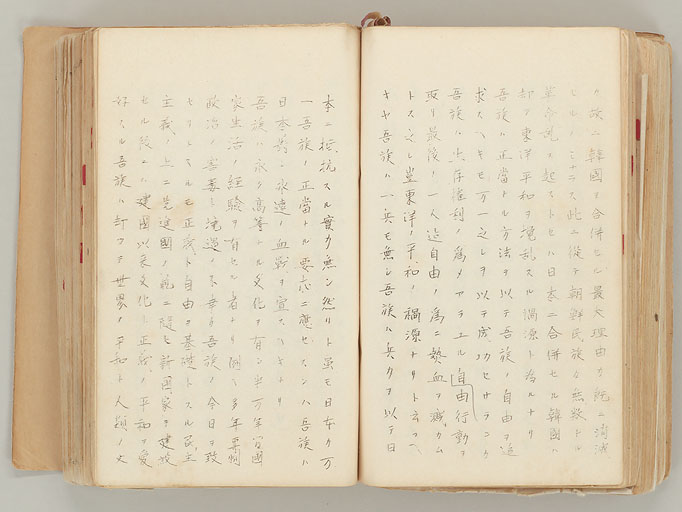 カ故ニ韓國ヲ合併セル最大理由カ既ニ消滅
セルノミナラス此ニ從テ朝鮮民族カ無數ナル
革命乱ヲ起ストセハ日本ニ合併セル韓國ハ
却テ東洋平和ヲ攪乱スル禍源ト為ルナリ
吾族ハ正當ナル方法ヲ以テ吾族ノ自由ヲ追
求スヘキモ万一之レヲ以テ成功セサランカ
吾族ハ生存權利ノ為メアラユル自由行動ヲ
取リ最後ノ一人迄自由ノ為ニ熱血ヲ濺カム
トス之レ豈東洋ノ平和ノ禍源ナリト云フヘ
キヤ吾族ハ一兵モ無シ吾族ハ兵力ヲ以テ日
本ニ抵抗スル實力無シ然リト雖モ日本カ万
一吾族ノ正當ナル要求ニ應セスンハ吾族ハ
日本ニ對シ永遠ノ血戰ヲ宣スヘキナリ
吾族ハ永ク高等ナル文化ヲ有シ半万年間國
家生活ノ經驗ヲ有セル者ナリ例ヘ多年專制
政治ノ害毒ト境遇ノ不幸カ吾族ノ今日ヲ致
セリトスルモ正義ト自由ヲ基礎トスル民主
主義ノ上ニ先進國ノ範ニ隨ヒ新國家ヲ建設
セル後ニハ建國以来文化ト正義ト平和ヲ愛
好スル吾族ハ 世界ノ平和ト人類ノ文